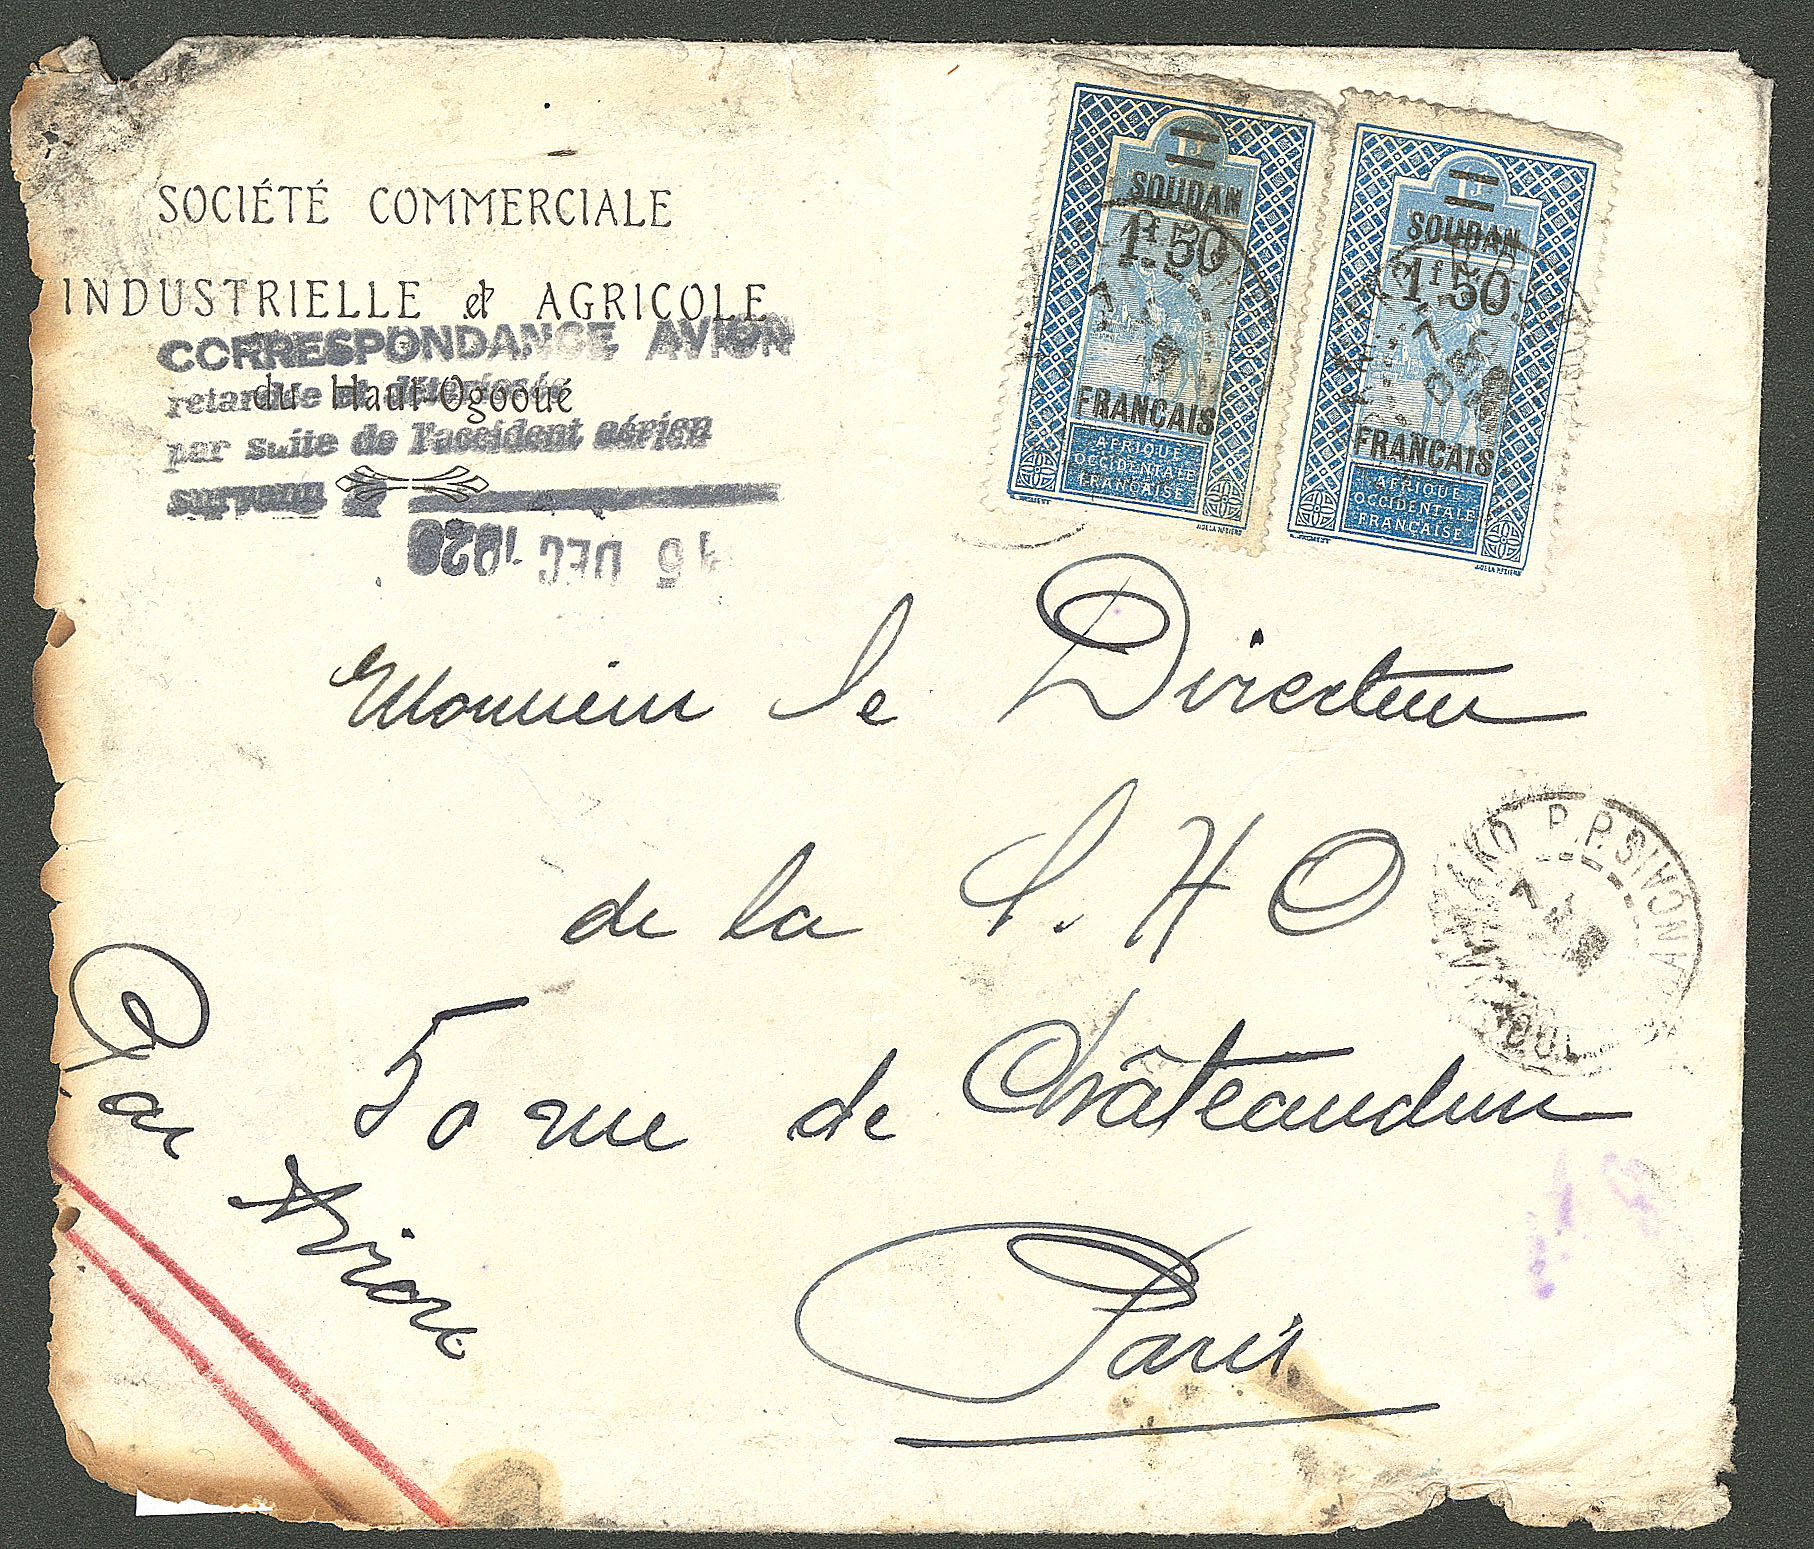 SOCIÉTÉ COMMERCIALE
INDUSTRIELLE et AGRICOLE
du Haut-Ogooué
CORRESPONDANCE AVION
retardée et détériorée
par suite de l'accident aérien
survenu
DEC 192
SOUDAN
1f.50
FRANCAIS
AFRIQUE
OCCIDENTALE
FRANÇAISE
SOUDAN
1f.50
FRANCAIS
AFRIQUE
OCCIDENTALE
FRANÇAISE
Monsieur le Directeur
de la S.H O
50 rue de Châteaudun
Paris
Par
Avion
BAMAKO P.P.
SOUDAN FRANCAIS
7